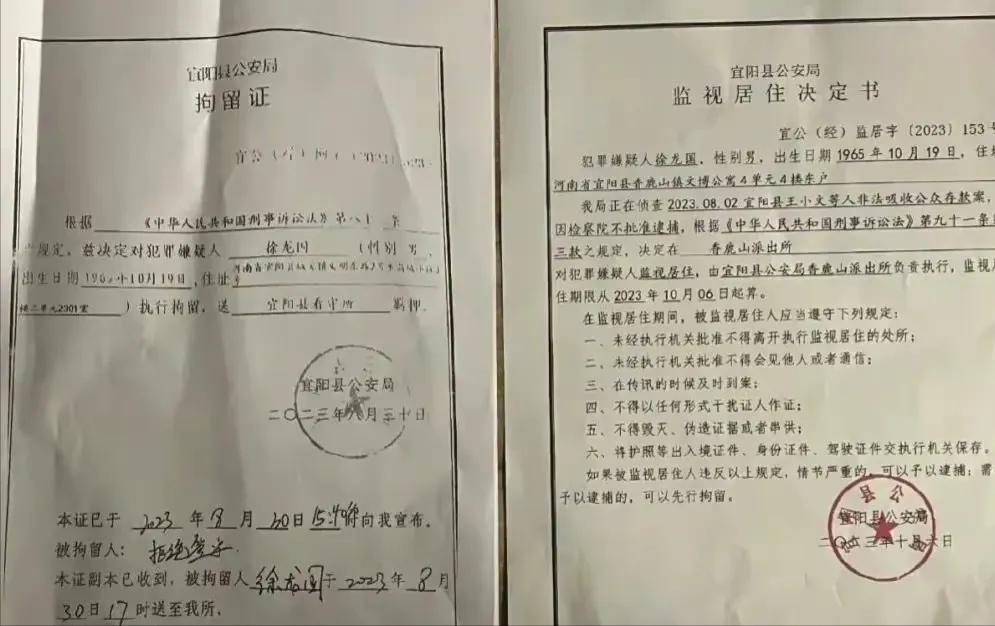 宜阳县公安局
拘留证
根据 《中华人民共和国刑事诉讼法》第八十 条
规定，兹决定对犯罪嫌疑人 徐龙国 （性别 男，
出生日期 1965年10月19日，住址
楼二单元2901室 ）执行拘留，送 宜阳县看守所 羁押。
宜阳县公安局
二〇二三年八月三十日
本证已于 2023 年 8 月 30 日 15 时 向我宣布。
被拘留人：拒绝签字
本证副本已收到，被拘留人 徐龙国 于 2023 年 8 月
30 日 17 时送至我所。
宜阳县公安局
监视居住决定书
宜公（经）监居字〔2023〕153号
犯罪嫌疑人徐龙国，性别男，出生日期 1965 年 10 月 19 日，住址
河南省宜阳县香鹿山镇文博公寓4单元4楼东户
我局正在侦查 2023.08.02 宜阳县王小文等人非法吸收公众存款案，
因检察院不批准逮捕，根据《中华人民共和国刑事诉讼法》第九十一条
三款之规定，决定在 香鹿山派出所
对犯罪嫌疑人监视居住，由宜阳县公安局香鹿山派出所负责执行，监视
住期限从 2023 年 10 月 06 日起算。
在监视居住期间，被监视居住人应当遵守下列规定：
一、未经执行机关批准不得离开执行监视居住的处所；
二、未经执行机关批准不得会见他人或者通信；
三、在传讯的时候及时到案；
四、不得以任何形式干扰证人作证；
五、不得毁灭、伪造证据或者串供；
六、将护照等出入境证件、身份证件、驾驶证件交执行机关保存。
如果被监视居住人违反以上规定，情节严重的，可以予以逮捕；需
予以逮捕的，可以先行拘留。
宜阳县公安局
二〇二三年十月六日